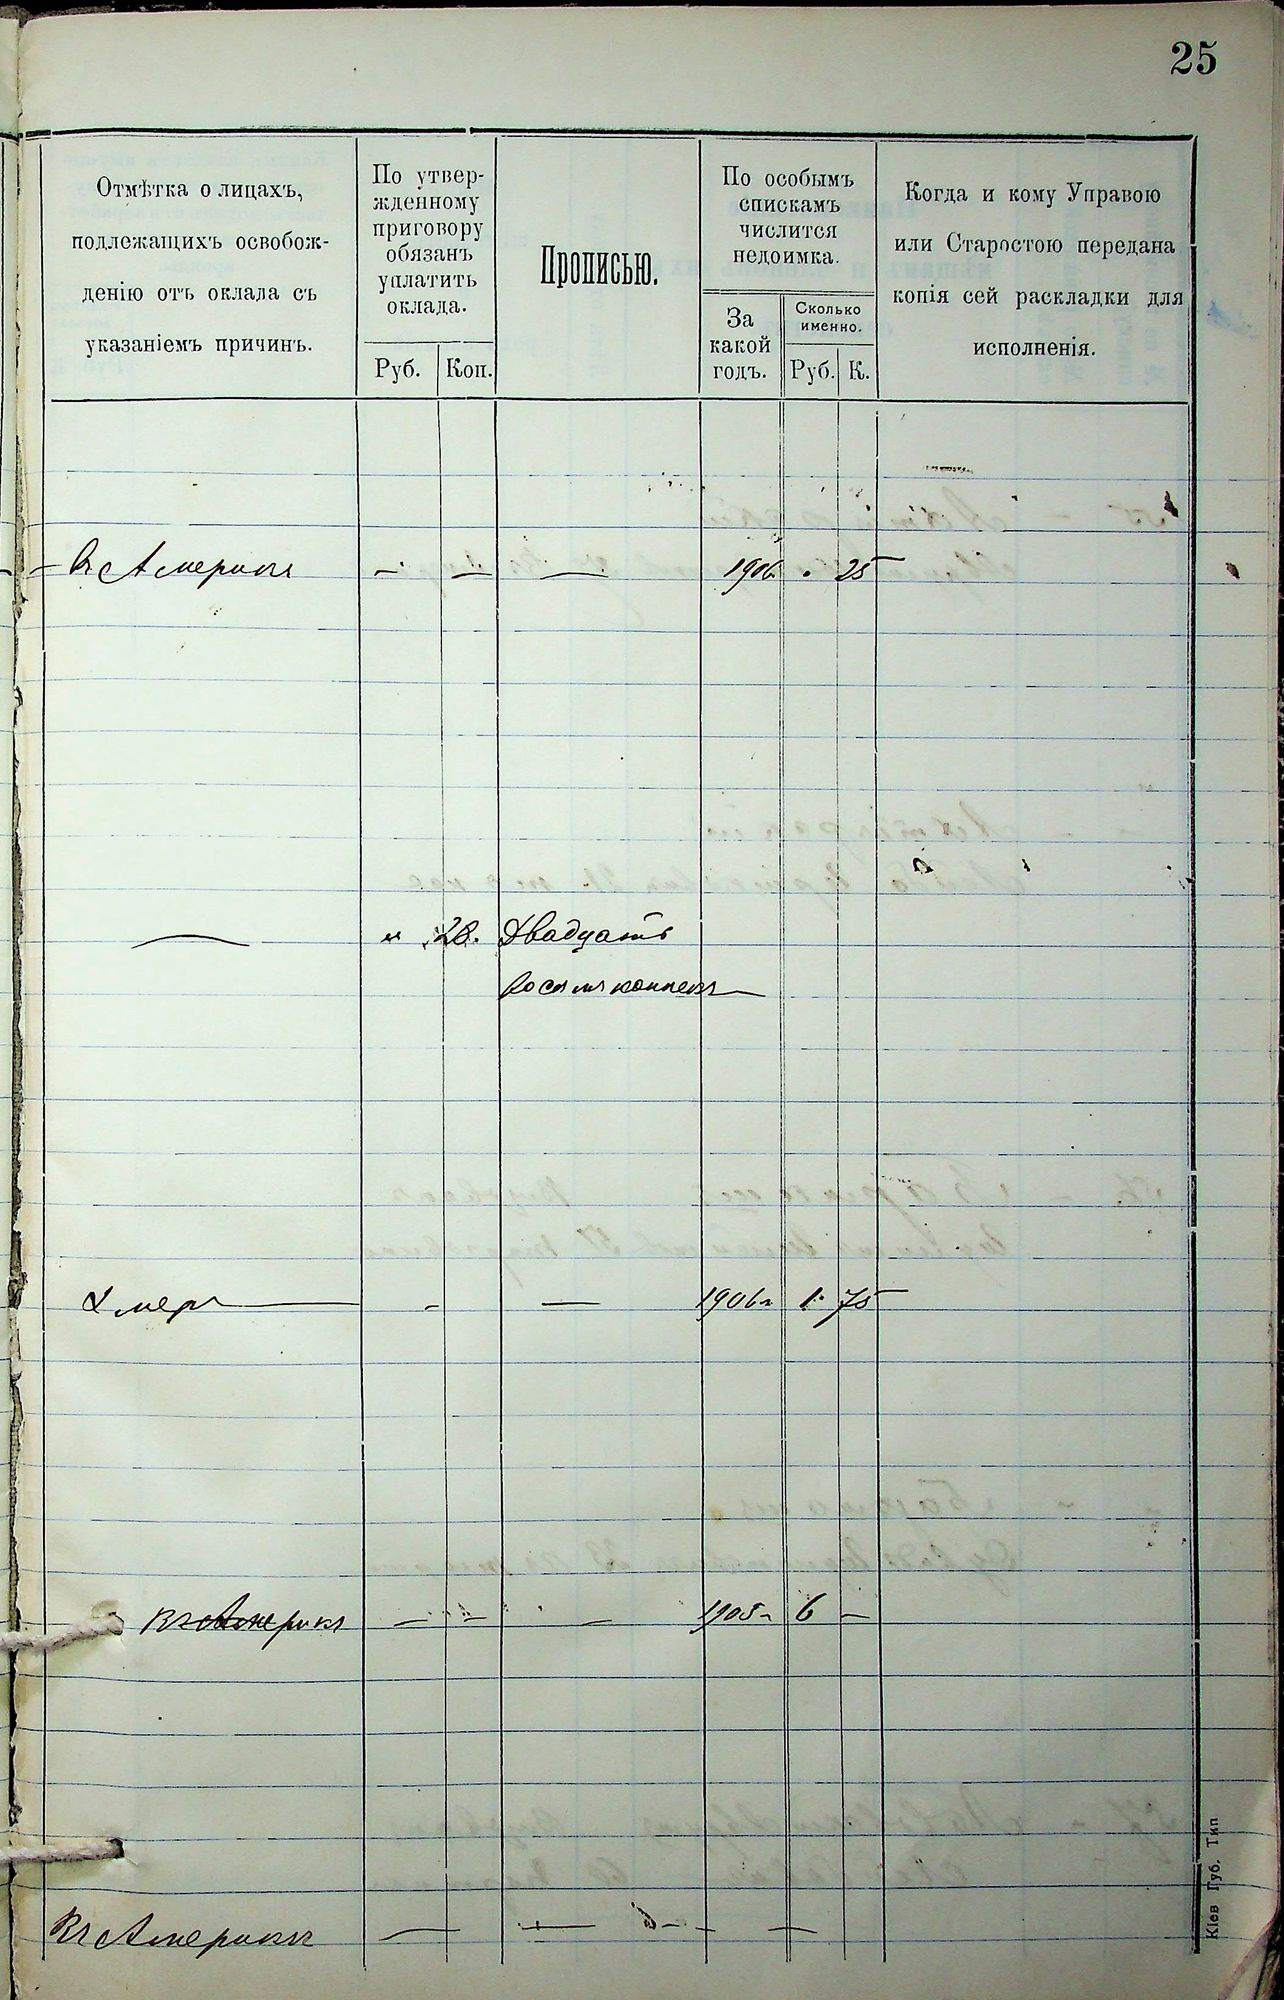 25
Отмѣтка о лицахъ,
подлежащихъ освобож-
денію отъ оклада съ
указаніемъ причинъ.
По утвер-
жденному
приговору
обязанъ
уплатить
оклада.
Руб. Коп.
Прописью.
По особымъ
спискамъ
числится
недоимка.
За
какой
годъ.
Сколько
именно.
Руб. К.
Когда и кому Управою
или Старостою передана
копія сей раскладки для
исполненія.
Въ Америкѣ — — — 1906 . 25
— " 28. Двадцать
восемь копеекъ
Умеръ - — 1906г 1. 75
Въ Америкѣ — — — 1905г 6 —
Въ Америкѣ — — — —
Кіев Губ. Тип